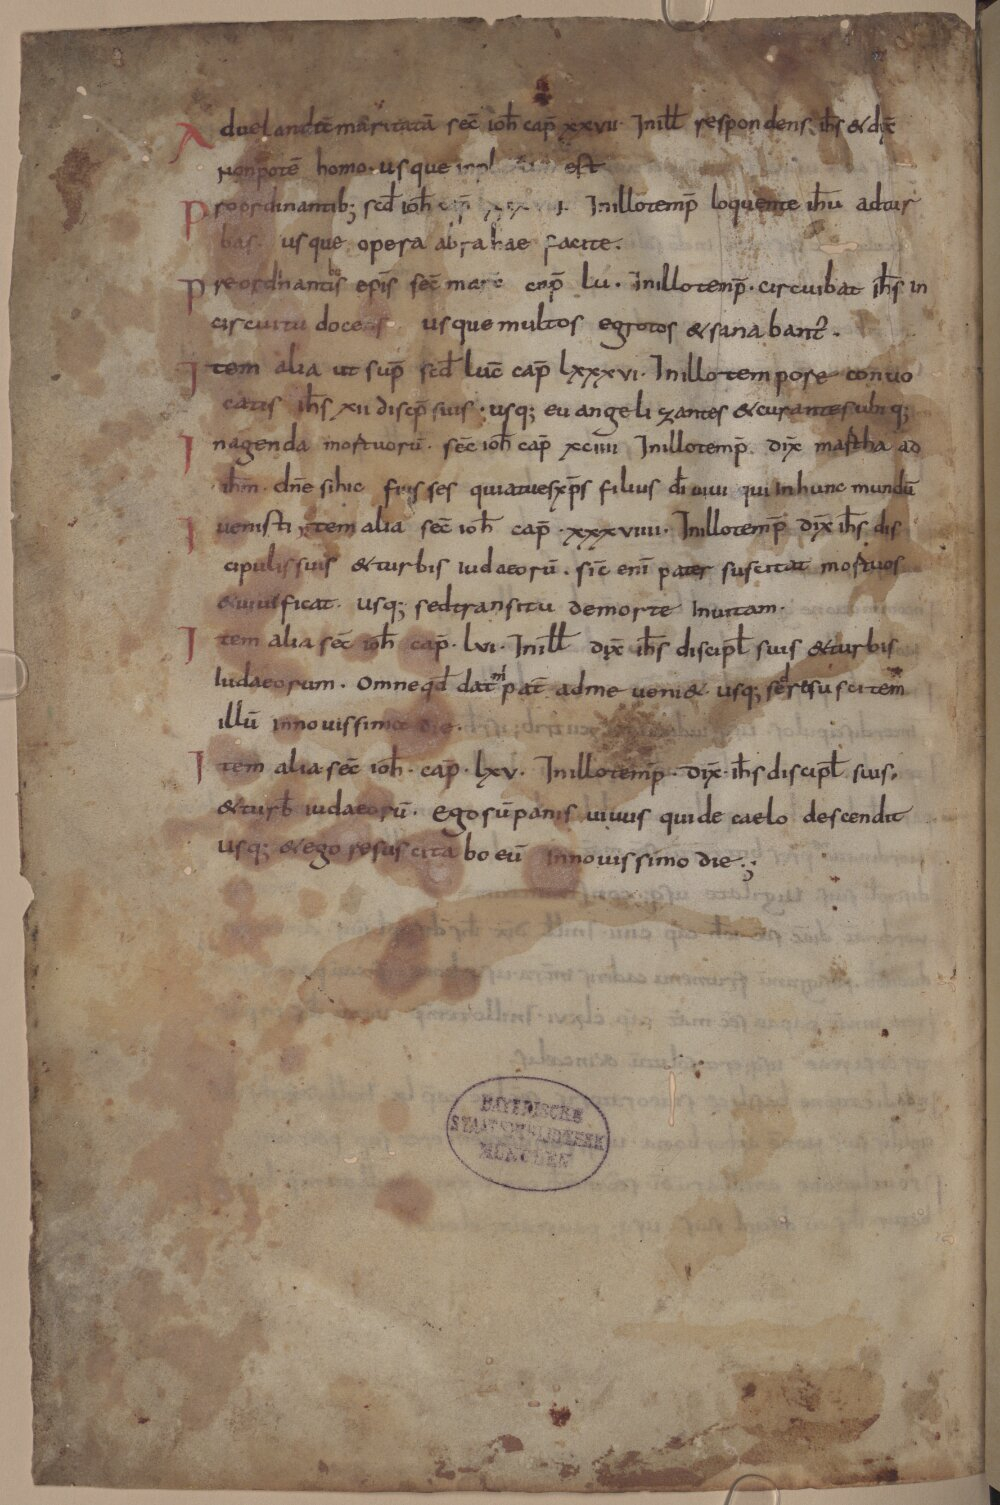 Aduelandū maritatā sec̄ ioh̄ cap̄ xxvii· Inill̄ respondens ih̄s & dix̄
Nonpotē homo· usque est
Proordinantib; scd̄ ioh̄ Inillotemp̄ loquente ih̄u adtur
bas· usque opera abrahae facite·
Preordinantis ep̄is sec̄ marc̄ cap̄ lu· Inillotemp̄· circuibat ih̄s in
circuitu docens usque multos egrotos & sanabant̄·
Item alia ut sup̄ scd̄ luc̄ cap̄ lxxxvi· Inillo tempore conuo
catis ih̄s xii discp̄ suis· usq; euangelizantes & curantes ubiq;
Inagenda mortuorū· sec̄ ioh̄ cap̄ xciiii Inillotemp̄· dix̄ martha ad
ih̄m· dn̄e sihic fuisses quiatuesxp̄s filius dī uiui qui inhunc mundū
uenisti Item alia sec̄ ioh̄ cap̄· xxxviiii· Inillotemp̄ dix̄ ih̄s dis
cipulis suis & turbis iudaeorū· sic̄ enī pater suscitat mortuos
& uiuificat· usq; sedtransitu demorte inuitam·
Item alia sec̄ ioh̄ cap̄· lvi· Inill̄ dix̄ ih̄s discipl̄ suis & turbis
Iudaeorum· Omneqd̄ dat mī pat̄ adme ueni&· usq; sed resuscitem
illū innouissimo die·
Item alia sec̄ ioh̄· cap̄· lxv· Inillotemp̄· dix̄· ih̄s discipl̄ suis·
& turb̄ iudaeorū· egosūpanis uiuus quide caelo descendit
usq; & ego resuscitabo eū innouissimo die·;
BAYERISCHE
STAATSBIBLIOTHEK
MÜNCHEN